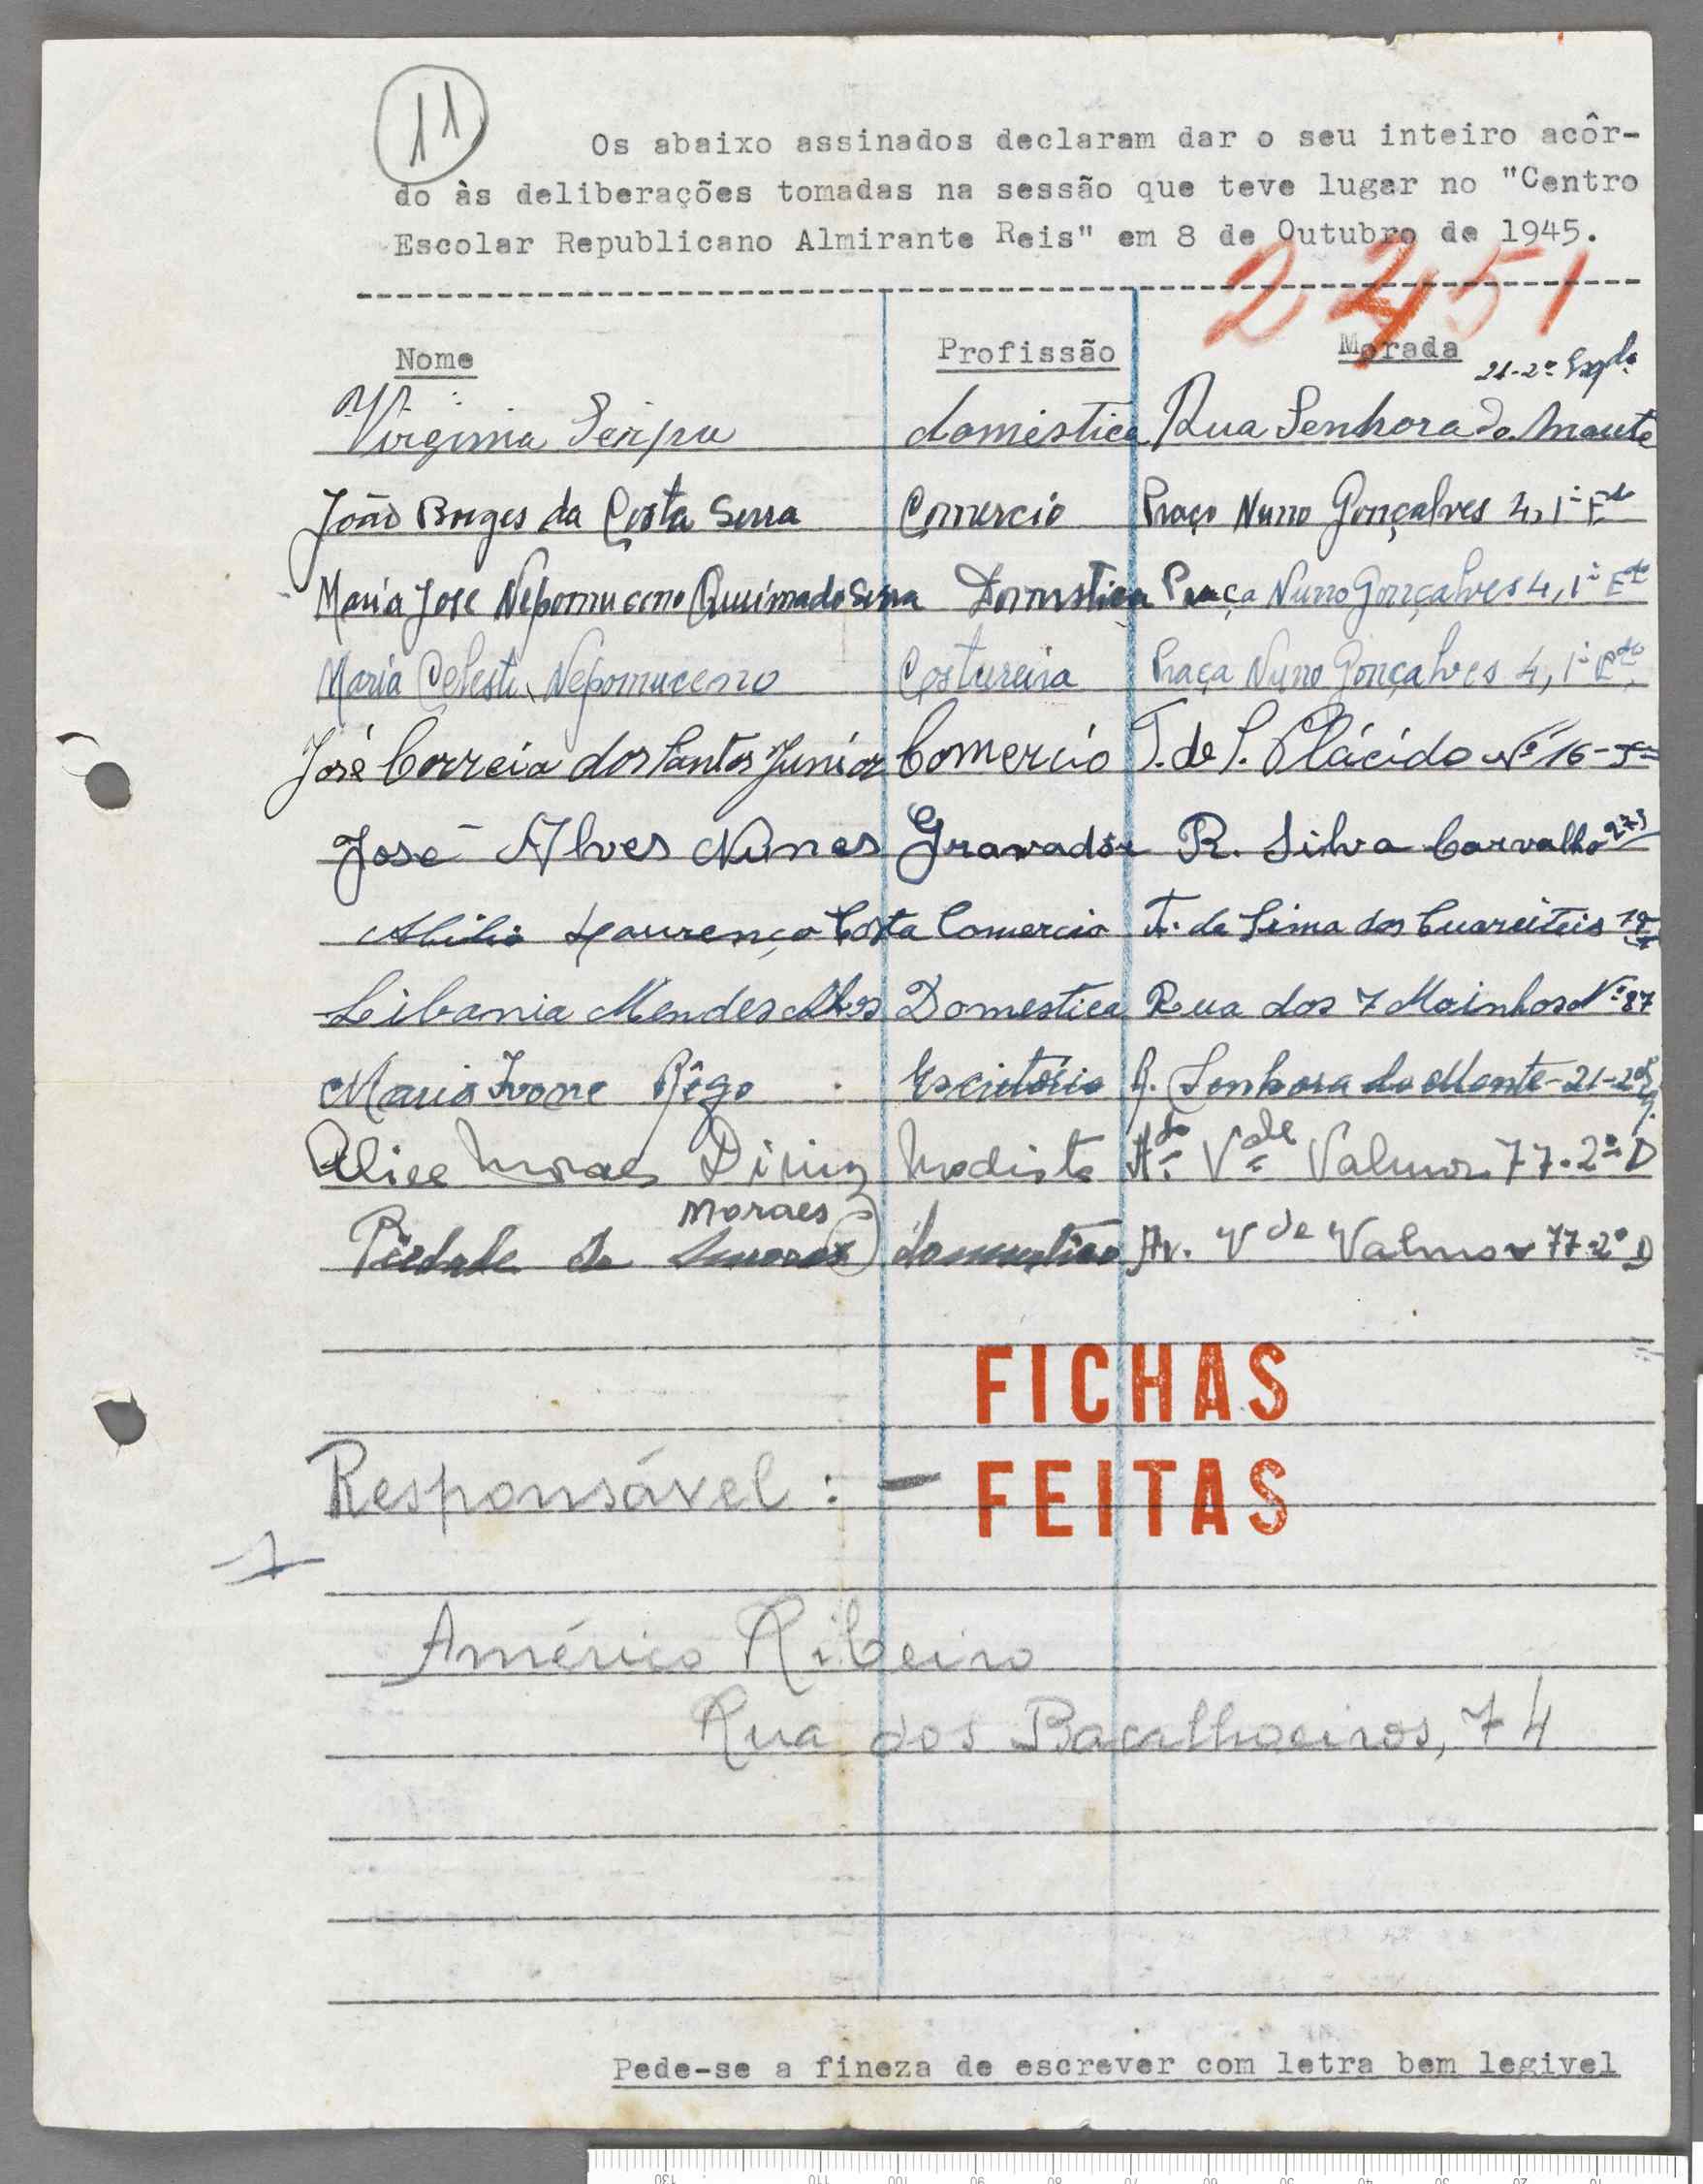 11
Os abaixo assinados declaram dar o seu inteiro acôr-
do às deliberações tomadas na sessão que teve lugar no "Centro
Escolar Republicano Almirante Reis" em 8 de Outubro de 1945.
2251
Nome Profissão Morada
21-2º Esqdo
Virginia doméstica Rua Senhora do Monte
João Borges da Costa Serra Comercio Praça Nuno Gonçalves 4, 1º Edo
Maria José Nepomuceno Queimado Serra Domestica Praça Nuno Gonçalves 4, 1º Edo
Maria Celeste Nepomuceno Costureira Praça Nuno Gonçalves 4, 1º Edo
José Correia dos Santos Junior Comercio T. de S. Plácido Nº 16-
José Alves Nunes Gravadôr R. Silva Carvalho 273
Abilio Lourenço Costa Comercio T. da Sima dos Quarteis
Libania Mendes Alves Domestica Rua dos 7 Moinhos Nº 87
Maria Ivone Rêgo Escritório R. Senhora do Monte-21-2º
Alice Moraes Diniz Modista Ada Vde Valmor 77-2º D
Moraes
Piedade da domestica Av. Vde Valmor 77-2º D
FICHAS
Responsável : - FEITAS
Américo Ribeiro
Rua dos Bacalhoeiros, 74
Pede-se a fineza de escrever com letra bem legivel